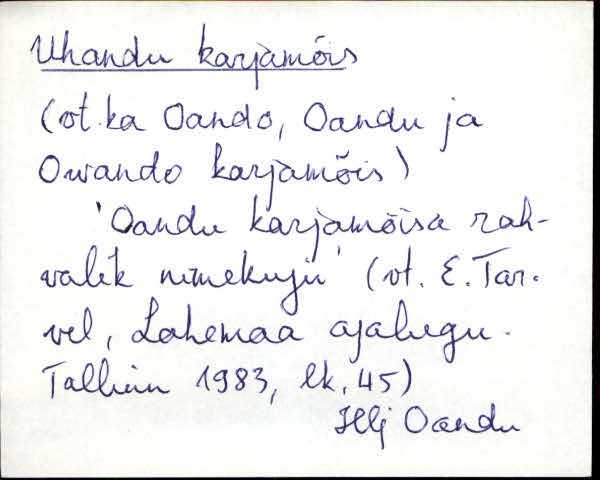 Uhandu karjamõis
(vt. ka Oando, Oandu ja
Owando karjamõis)
'Oandu karjamõisa rah-
valik nimekuju' (vt. E. Tar-
vel, Lahemaa ajalugu.
Tallinn 1983, lk. 45)
Hlj Oandu